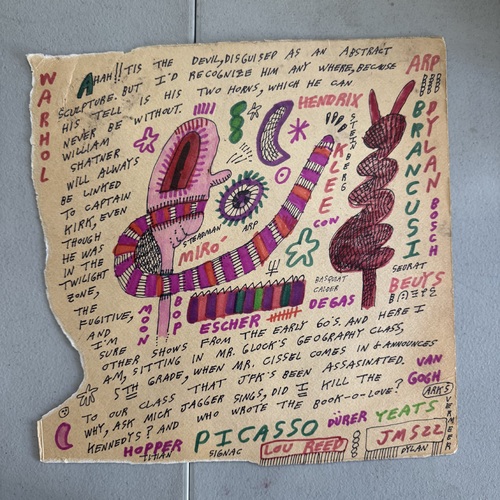 WARHOL
AHAH!! 'TIS THE DEVIL, DISGUISED AS AN ABSTRACT
SCULPTURE. BUT I'D RECOGNIZE HIM ANY WHERE, BECAUSE
HIS TELL IS HIS TWO HORNS, WHICH HE CAN
NEVER BE WITHOUT.
WILLIAM
SHATNER
WILL ALWAYS
BE LINKED
TO CAPTAIN
KIRK, EVEN
THOUGH
HE WAS
IN THE
TWILIGHT
ZONE,
THE
FUGITIVE,
AND
I'M
SURE OTHER SHOWS FROM THE EARLY 60'S. AND HERE I
AM, SITTING IN MR. GLOCK'S GEOGRAPHY CLASS,
5TH GRADE, WHEN MR. CISSEL COMES IN & ANNOUNCES
TO OUR CLASS THAT JFK'S BEEN ASSASINATED.
WHY, ASK MICK JAGGER SINGS, DID I KILL THE
KENNEDYS? AND WHO WROTE THE BOOK-O-LOVE?
ARP
DYLAN
BRANCUSI
BOSCH
HENDRIX
STEINBERG
KLEE
CON
STEADMAN
ARP
MIRO
BASQUIAT
CALDER
SEURAT
BEUYS
MOON
BOP
ESCHER
DEGAS
VAN
GOGH
ARKS
VERMEER
HOPPER
TITIAN
PICASSO
SIGNAC
DÜRER
YEATS
LOU REED
JMS22
DYLAN